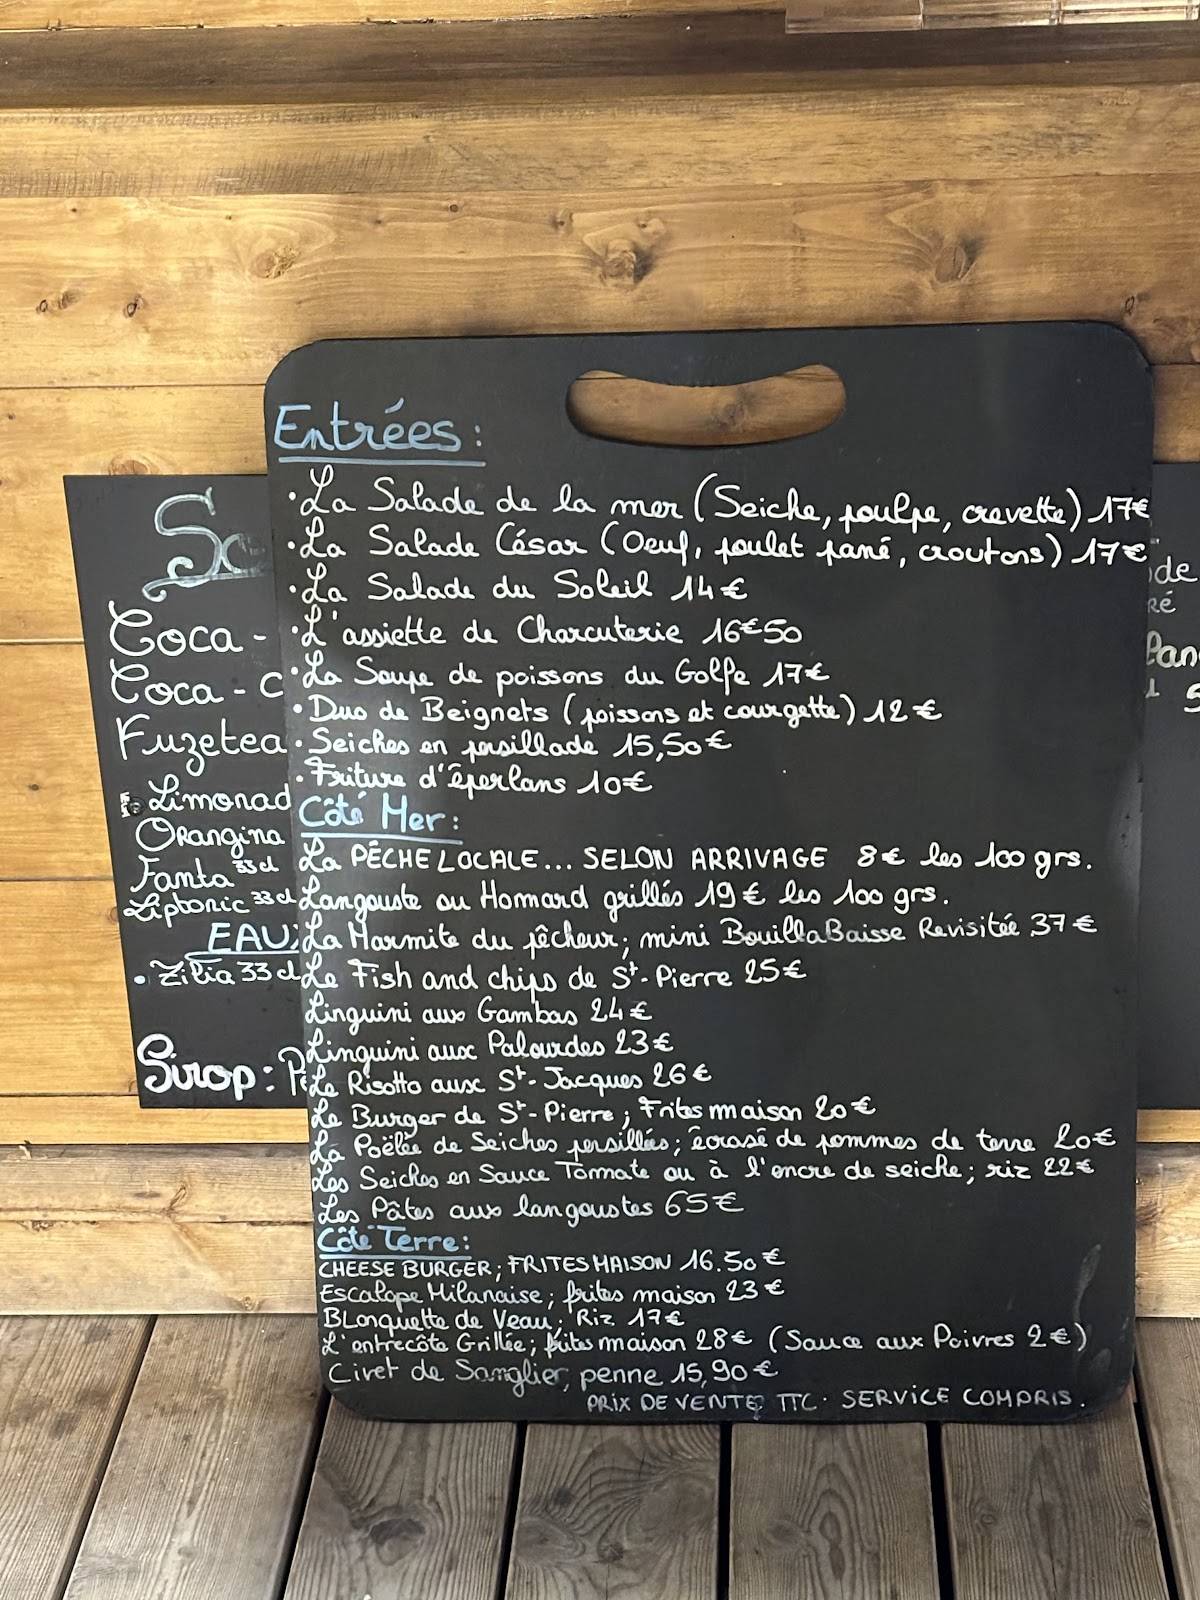 Entrées :
• La Salade de la mer (Seiche, poulpe, crevette) 17€
• La Salade César (Oeuf, poulet pané, croutons) 17€
• La Salade du Soleil 14€
• L'assiette de Charcuterie 16€50
• La Soupe de poissons du Golfe 17€
• Duo de Beignets (poissons et courgette) 12€
• Seiches en persillade 15,50€
• Friture d'éperlans 10€
Côté Mer :
La PÊCHE LOCALE... SELON ARRIVAGE 8€ les 100 grs.
Langouste ou Homard grillés 19€ les 100 grs.
La Marmite du pêcheur; mini BouillaBaisse Revisitée 37€
Le Fish and chips de St-Pierre 25€
Linguini aux Gambas 24€
Linguini aux Palourdes 23€
Le Risotto aux St-Jacques 26€
Le Burger de St-Pierre; Frites maison 20€
La Poêlée de Seiches persillées; écrasé de pommes de terre 20€
Les Seiches en Sauce Tomate ou à l'encre de seiche; riz 22€
Les Pâtes aux langoustes 65€
Côté Terre :
CHEESE BURGER; FRITES MAISON 16.50€
Escalope Milanaise; frites maison 23€
BLanquette de Veau; Riz 17€
L'entrecôte Grillée; frites maison 28€ (Sauce aux Poivres 2€)
Civet de Sanglier, penne 15,90€
PRIX DE VENTE TTC. SERVICE COMPRIS.
Coca -
Coca - C
Fuzetea
Limonad
Orangina
Fanta 33cl
Liptonic 33cl
EAU:
• Zilia 33cl
Sirop :